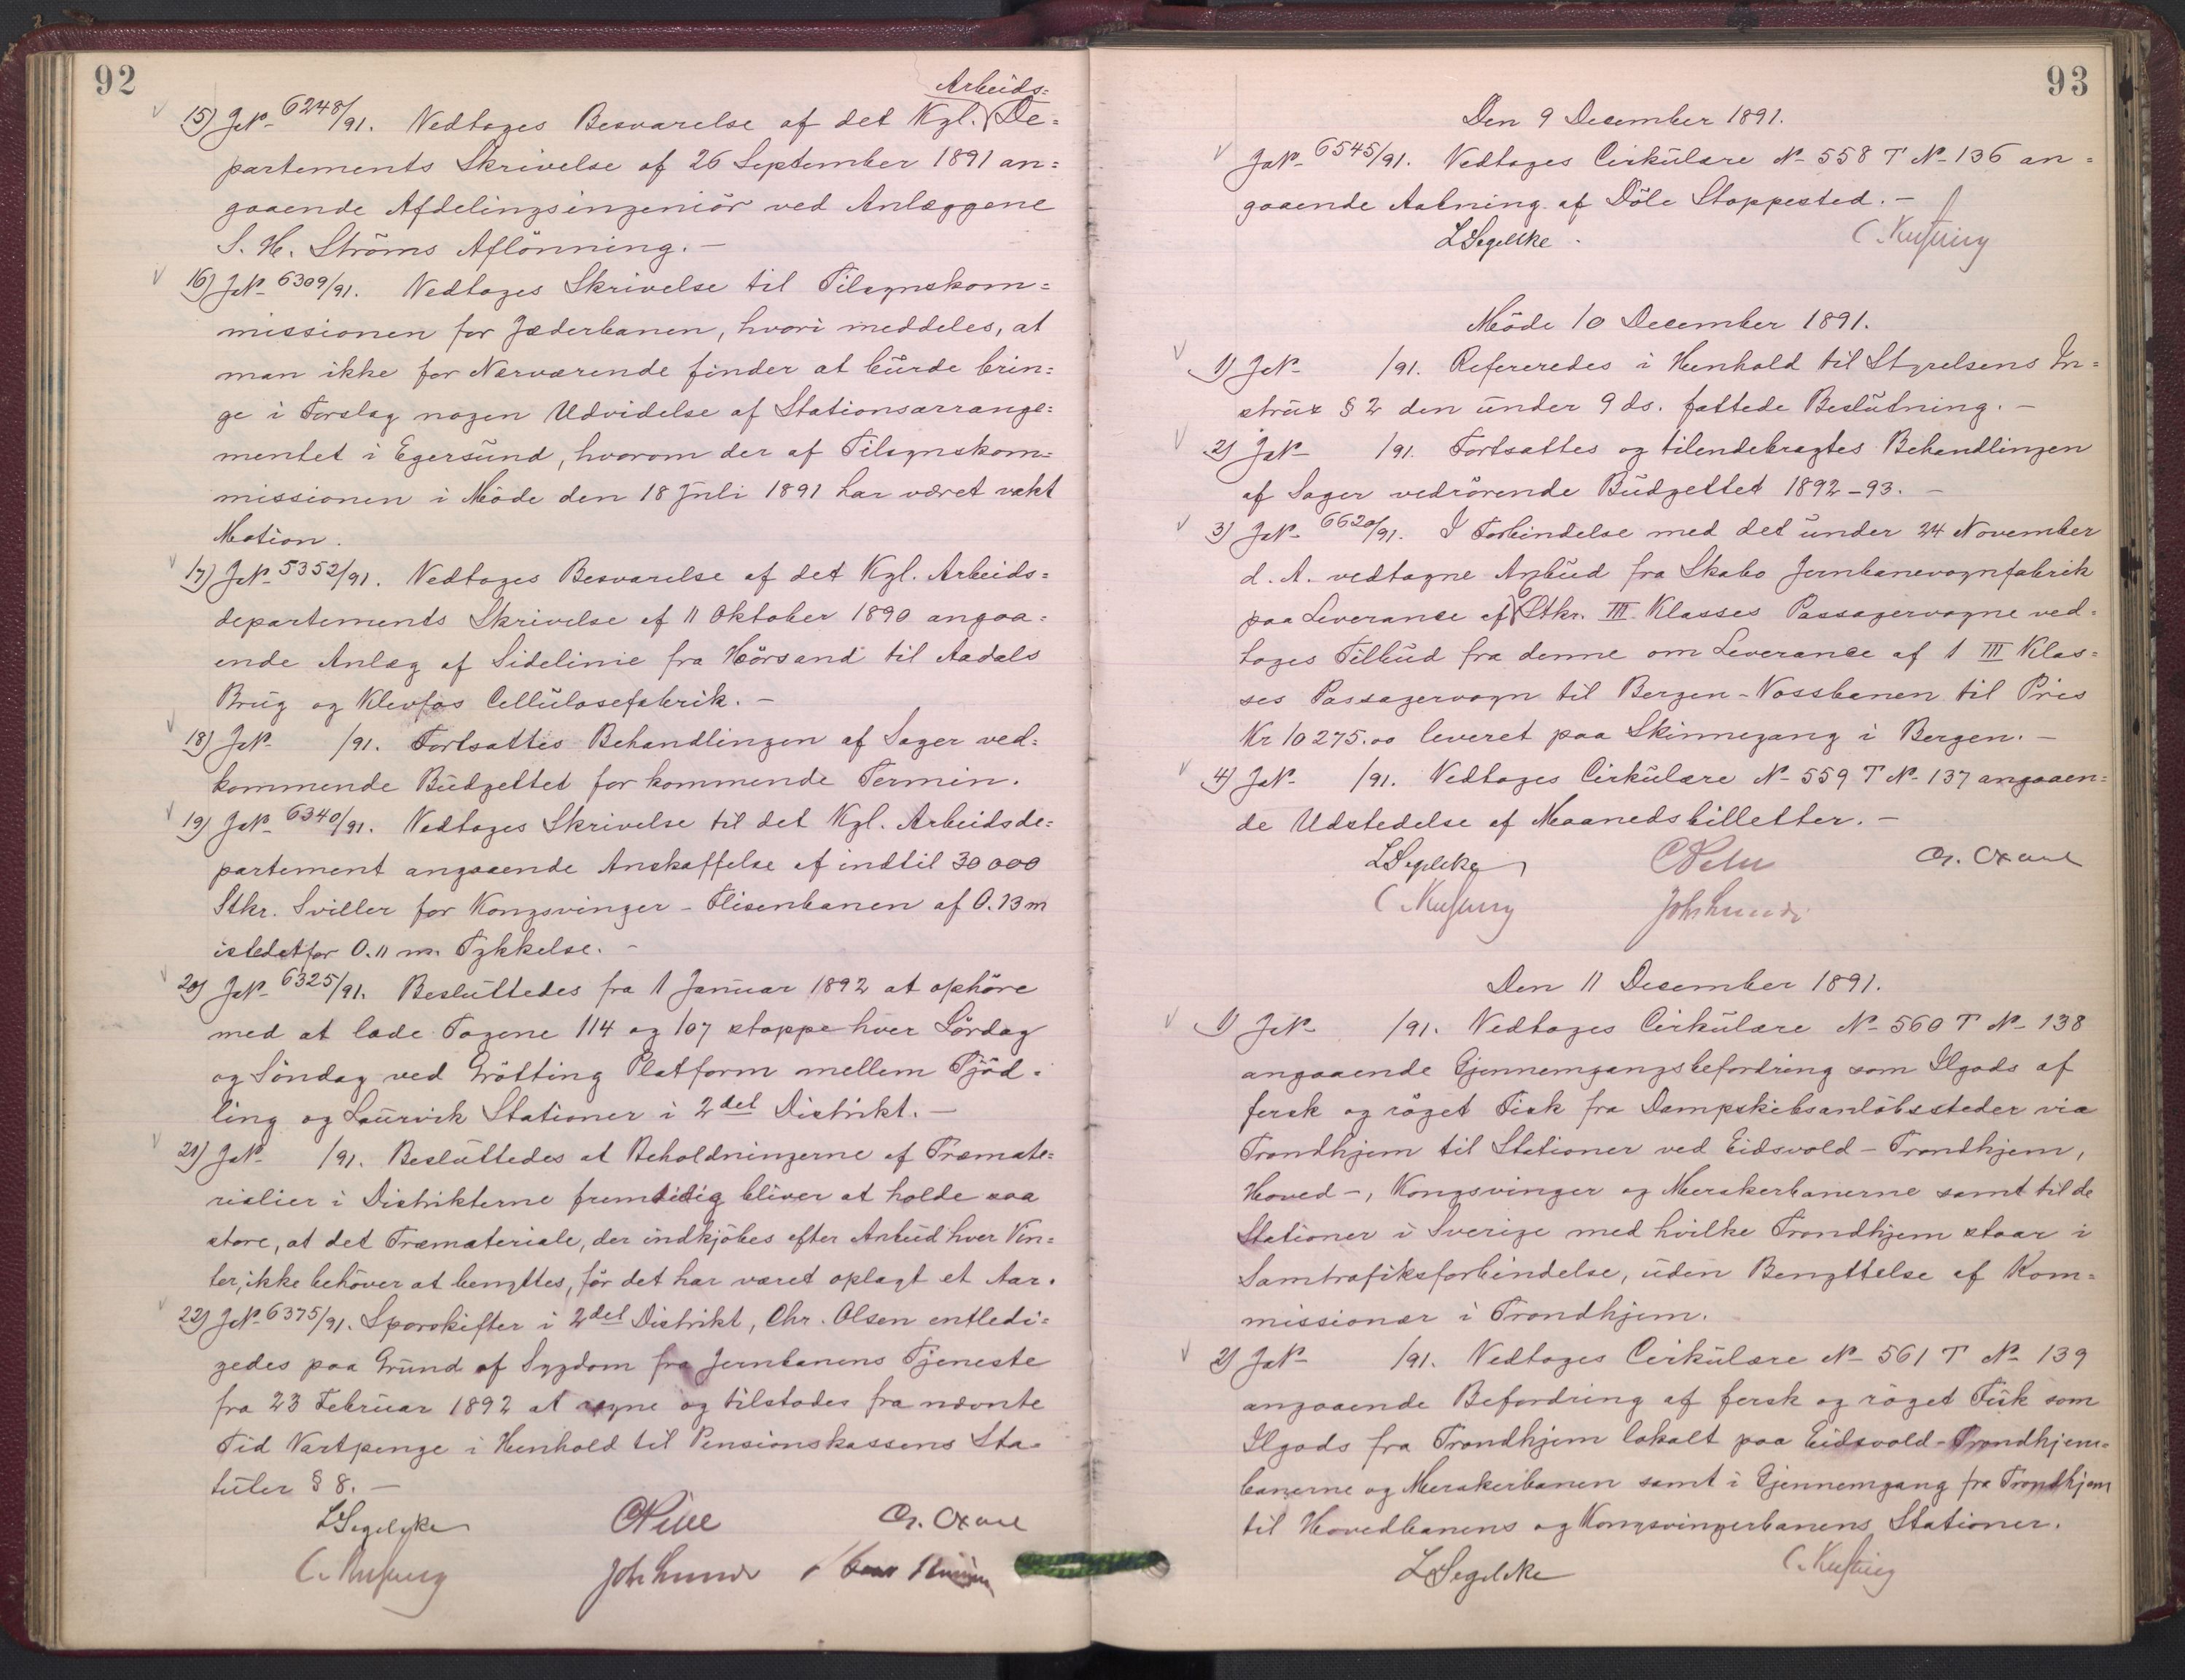 92
Arbeids=
15) JNo 6248/91. Vedtoges Besvarelse af det Kgl. De=
partements Skrivelse af 26 September 1891 an=
gaaende Afdelingsingeniör ved Anlæggene
S. H. Ströms Aflönning. –
16) JNo 6309/91. Vedtoges Skrivelse til Tilsynskom=
missionen for Jæderbanen, hvori meddeles, at
man ikke for Nærværende finder at burde brin=
ge i Forslag nogen Udvidelse af Stationsarrange=
mentet i Egersund, hvorom der af Tilsynskom=
missionen i Möde den 18 Juli 1891 har været vakt
Motion.
17) JNo 5352/91. Vedtoges Besvarelse af det Kgl. Arbeids=
departements Skrivelse af 11 Oktober 1890 angaa=
ende Anlæg af Sidelinie fra Hörsand til Aadals
Brug og Klevfos Cellulosefabrik. –
18) JNo /91. Fortsattes Behandlingen af Sager ved=
kommende Budgettet for kommende Termin.
19) JNo 6340/91. Vedtoges Skrivelse til det Kgl. Arbeidsde=
partement angaaende Anskaffelse af indtil 30 000
Stkr. Sviller for Kongsvinger – Flisenbanen af 0.13 m
istedetfor 0.11 m. Tykkelse. –
20) JNo 6325/91. Besluttedes fra 1 Januar 1892 at ophöre
med at lade Togene 114 og 107 stoppe hver Lördag
og Söndag ved Grötting Platform mellem Tjöd=
ling og Laurvik Stationer i 2det Distrikt. –
21) JNo /91. Besluttedes at Beholdningerne af Træmate=
rialier i Distrikterne fremtidig bliver at holde saa
store, at det Træmateriale, der indkjöbes efter Anbud hver Vin=
ter, ikke behöver at benyttes, för det har været oplagt et Aar.
22) JNo 6375/91. Sporskifter i 2det Distrikt, Chr. Olsen entledi=
gedes paa Grund af Sygdom fra Jernbanens Tjeneste
fra 23 Februar 1892 at regne og tilstodes fra nævnte
Tid Vartpenge i Henhold til Pensionskassens Sta=
tuter § 8. –
LSegelcke CPihl
Joh Lunde
93
Den 9 December 1891.
JNo 6545/91. Vedtoges Cirkulære No 558 T No 136 an=
gaaende Aabning af Döle Stoppested. –
LSegelcke
Möde 10 December 1891.
1) JNo /91. Refereredes i Henhold til Styrelsens In=
strux § 2 den under 9 ds. fattede Beslutning. –
2) JNo /91. Fortsattes og tilendebragtes Behandlingen
af Sager vedrörende Budgettet 1892–93. –
3) JNo 6620/91. I Forbindelse med det under 24 November
d. A. vedtagne Anbud fra Skabo Jernbanevognfabrik
paa Leverance af 6 Stkr. III Klasses Passagervogne ved=
toges Tilbud fra denne om Leverance af 1 III Klas=
ses Passagervogn til Bergen–Vossbanen til Pris
Kr 10275.00 leveret paa Skinnegang i Bergen. –
4) JNo /91. Vedtoges Cirkulære No 559 T No 137 angaaen=
de Udstedelse af Maanedsbilletter. –
LSegelcke CPihl
Joh Lunde
Den 11 December 1891.
1) JNo /91. Vedtoges Cirkulære No 560 T No 138
angaaende Gjennemgangsbefordring som Ilgods af
fersk og röget Fisk fra Dampskibsanlöbssteder via
Trondhjem til Stationer ved Eidsvold – Trondhjem,
Hoved –, Kongsvinger og Merakerbanerne samt til de
Stationer i Sverige med hvilke Trondhjem staar i
Samtrafiksforbindelse, uden Benyttelse af Kom=
missionær i Trondhjem.
2) JNo /91. Vedtoges Cirkulære No 561 T No 139
angaaende Befordring af fersk og röget Fisk som
Ilgods fra Trondhjem lokalt paa Eidsvold–Trondhjem=
banerne og Merakerbanen samt i Gjennemgang fra Trondhjem
til Hovedbanens og Kongsvingerbanens Stationer.
LSegelcke